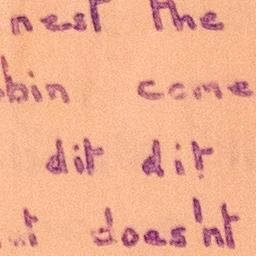 nest the
bin come
dit dit
doesn't